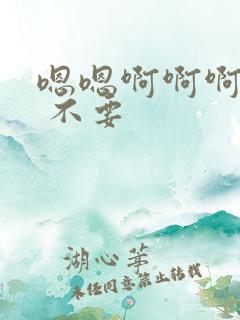 嗯嗯啊啊啊
不要
湖心茅
未经同意禁止转载